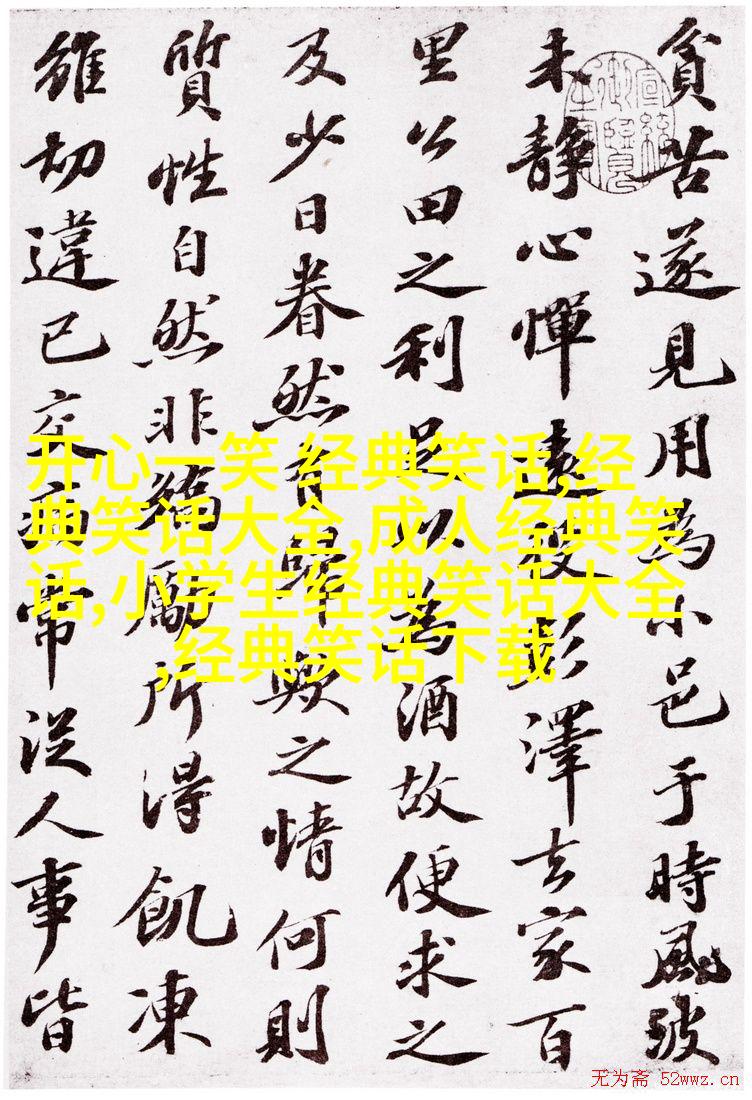 貧苦遂見用為小邑于時風波
未靜心憚遠役彭澤去家百
里公田之利足以為酒故便求之
及少日眷然有歸歟之情何則
質性自然非矯勵所得飢凍
雖切違己交病常從人事皆
开心一笑 经典笑话,经
典笑话大全,成人经典笑
话,小学生经典笑话大全
,经典笑话下载
无为斋 52wwz.cn